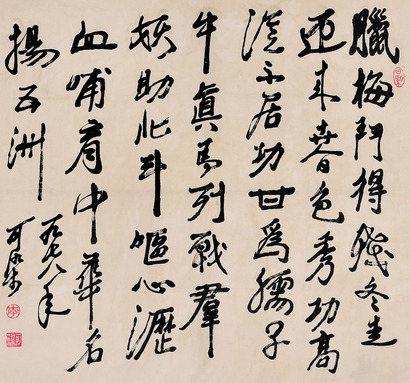 臘梅鬥得殘冬尽
迎来春色秀功高
從不居功甘爲孺子
牛眞馬列戰羣
妖助北斗嘔心瀝
血哺育中華名
揚五洲
一九七八年
可染